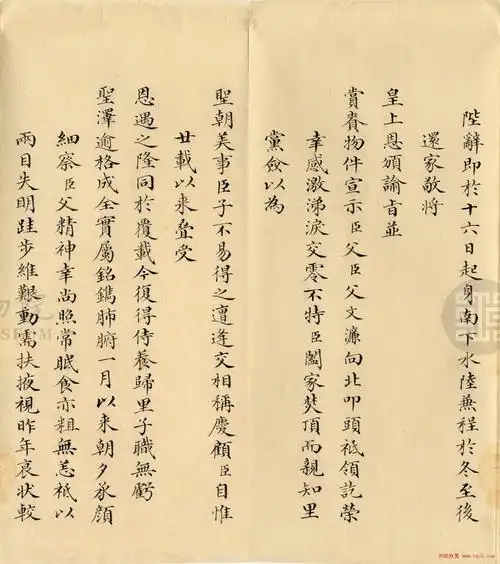 陛辭即於十六日起身南下水陸兼程於冬至後
還家敬將
皇上恩頒諭旨並
賞賚物件宣示臣父臣父文濂向北叩頭祗領訖榮
幸感激涕淚交零不特臣闔家焚頂而親知里
黨僉以為
聖朝美事臣子不易得之遭逢交相稱慶顧臣自惟
廿載以来疊受
恩遇之隆同於覆載今復得侍養歸里子職無虧
聖澤逾格成全實屬銘鐫肺腑一月以来朝夕承顏
細察臣父精神幸尚照常眠食亦粗無恙祗以
兩目失明跬步維艱動需扶掖視昨年衰状較